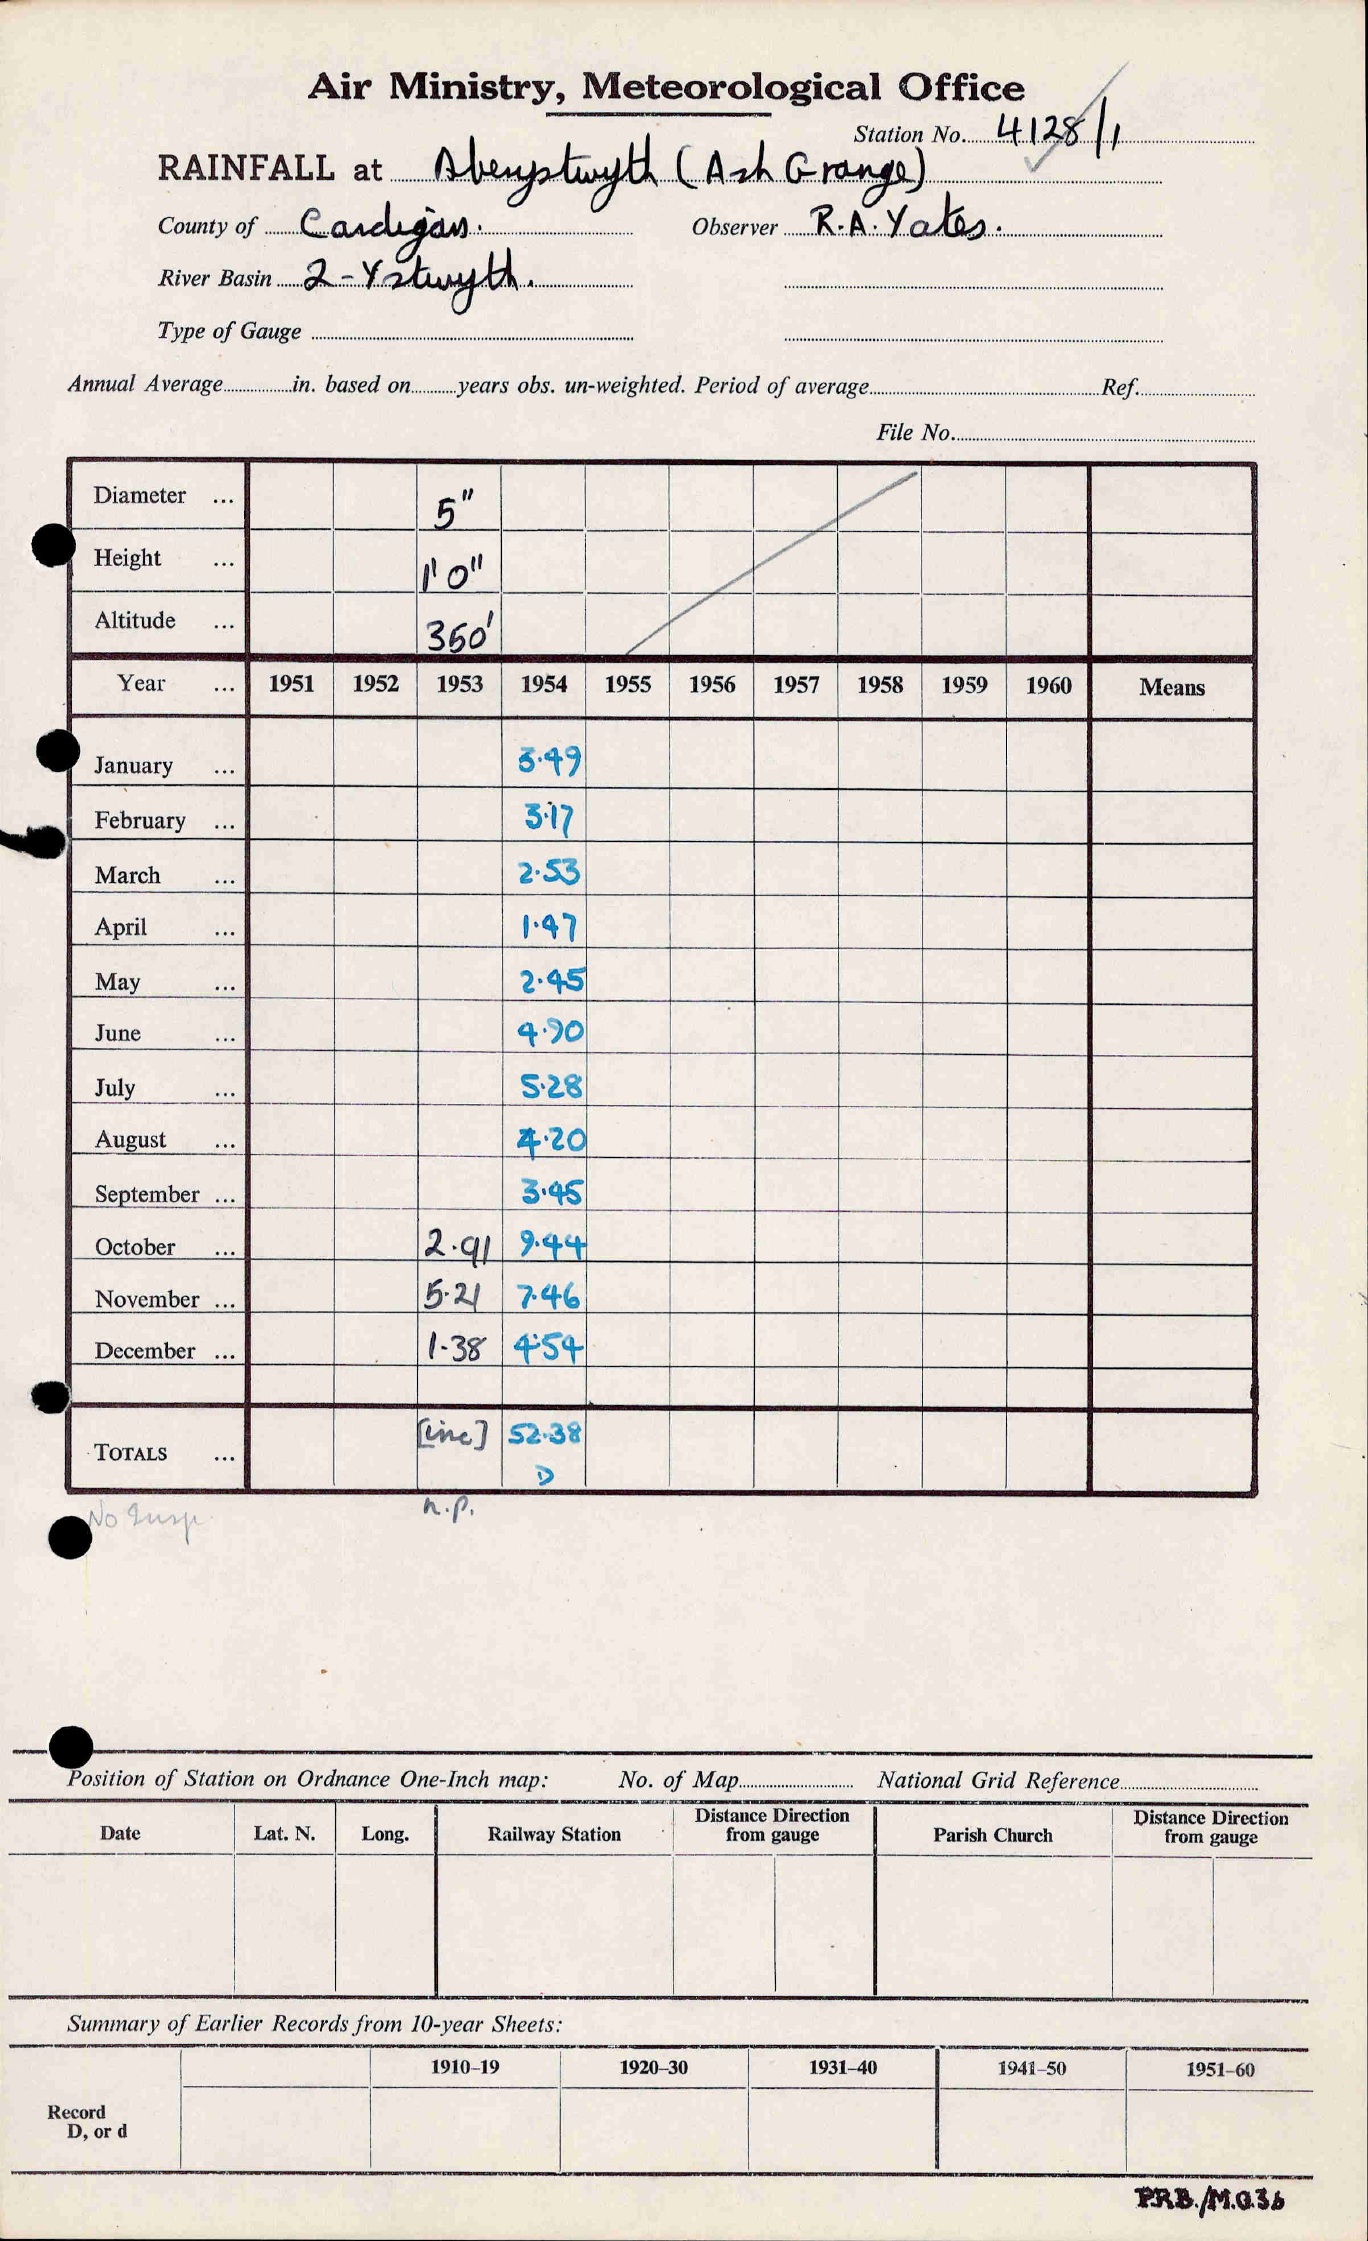 Air Ministry, Meteorological Office
Station No. 4128/1
RAINFALL at Aberystwyth (Ash Grange)
County of Cardigan. Observer R.A. Yates.
River Basin 2 - Ystwyth.
Type of Gauge
Annual Average in. based on years obs. un-weighted. Period of average Ref.
File No.
Diameter ... 5"
Height ... 1' 0"
Altitude ... 350'
Year ... 1951 1952 1953 1954 1955 1956 1957 1958 1959 1960 Means
January ... 3.49
February ... 3.17
March ... 2.53
April ... 1.47
May ... 2.45
June ... 4.90
July ... 5.28
August ... 4.20
September ... 3.45
October ... 2.91 9.44
November ... 5.21 7.46
December ... 1.38 4.54
TOTALS ... [inc] 52.38
D
No Insp. n.p.
Position of Station on Ordnance One-Inch map: No. of Map National Grid Reference
Date Lat. N. Long. Railway Station Distance Direction from gauge Parish Church Distance Direction from gauge
Summary of Earlier Records from 10-year Sheets:
1910–19 1920–30 1931–40 1941–50 1951–60
Record
D, or d
P.R.B./M.O.36